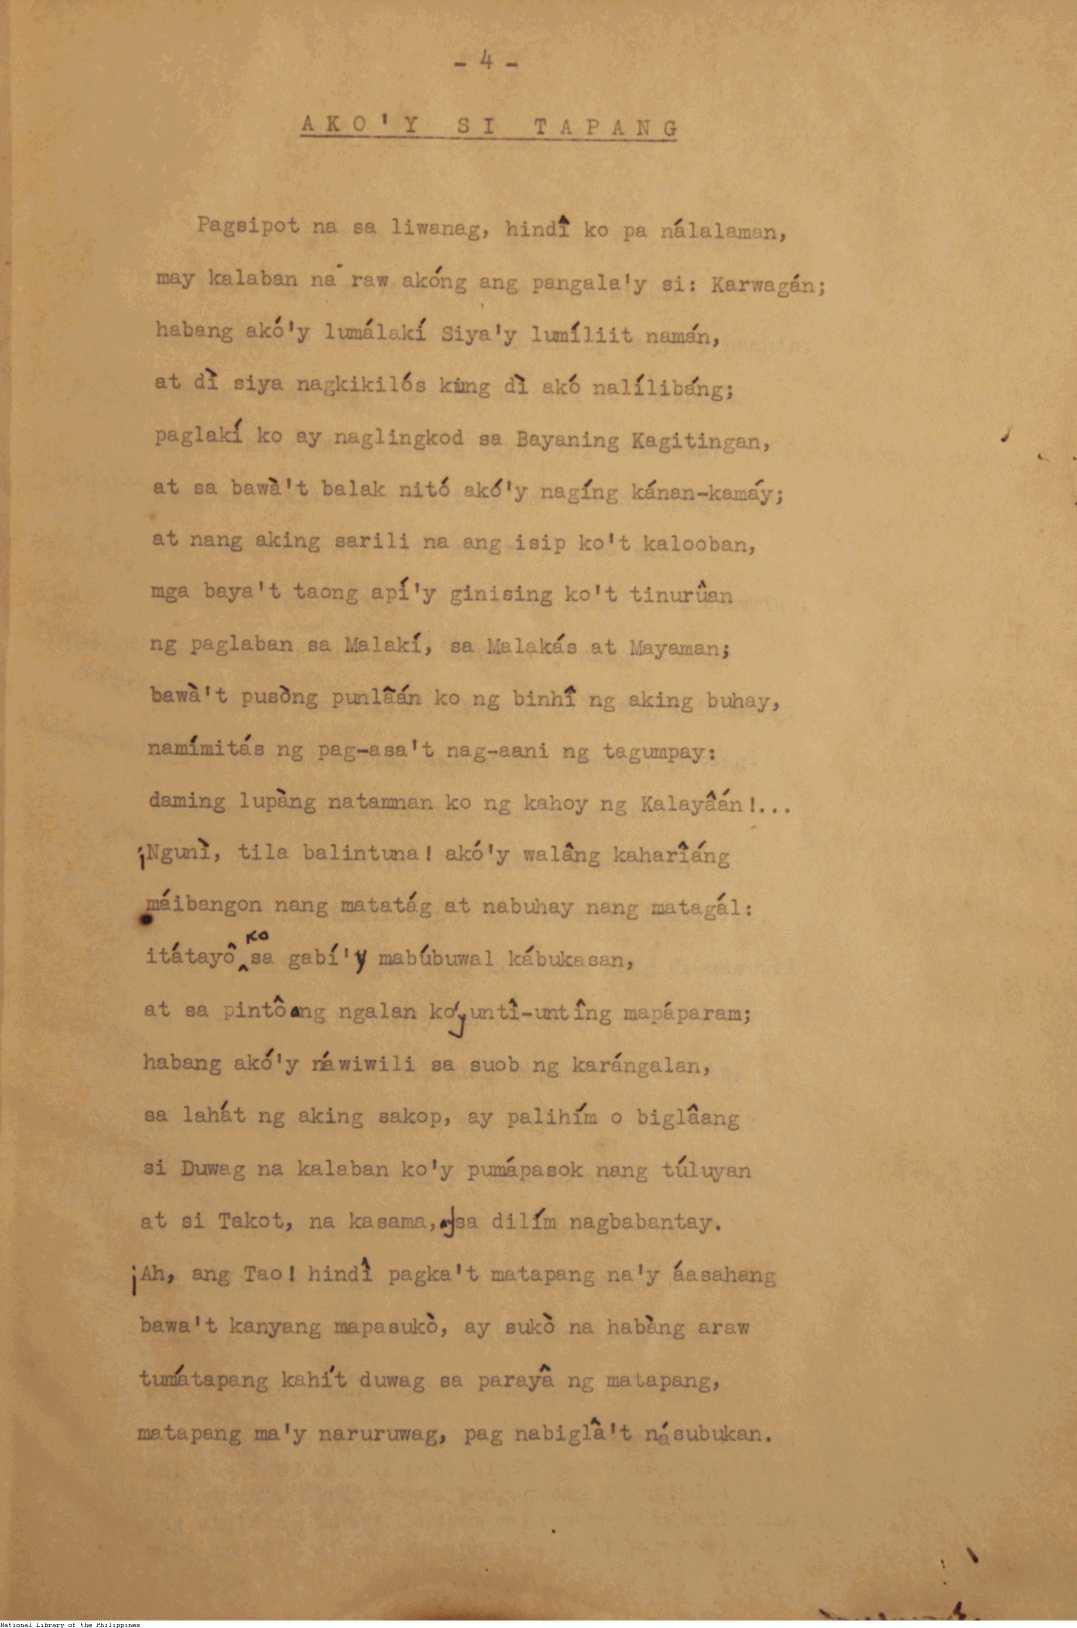 - 4 -
AKO'Y SI TAPANG
Pagsipot na sa liwanag, hindî ko pa nálalaman,
may kalaban na raw akóng ang pangala'y si: Karwagán;
habang akó'y lumálakí Siya'y lumíliit namán,
at dì siya nagkikilós kung dì akó nalílibáng;
paglakí ko ay naglingkod sa Bayaning Kagitingan,
at sa bawà't balak nitó akó'y nagíng kánan-kamáy;
at nang aking sarili na ang isip ko't kalooban,
mga baya't taong apí'y ginising ko't tinurûan
ng paglaban sa Malakí, sa Malakás at Mayaman;
bawà't pusòng punlâán ko ng binhî ng aking buhay,
namímitás ng pag-asa't nag-aani ng tagumpay:
daming lupàng natamnan ko ng kahoy ng Kalayâán!...
¡Ngunì, tila balintuna! akó'y walâng kaharîáng
máibangon nang matatág at nabuhay nang matagál:
itátayô ko sa gabí'y mabúbuwal kábukasan,
at sa pintôang ngalan ko'y untî-untîng mapáparam;
habang akó'y náwiwili sa suob ng karángalan,
sa lahát ng aking sakop, ay palihím o biglâang
si Duwag na kalaban ko'y pumápasok nang túluyan
at si Takot, na kasama, sa dilím nagbabantay.
¡Ah, ang Tao! hindî pagka't matapang na'y áasahang
bawa't kanyang mapasukò, ay sukò na habàng araw
tumátapang kahít duwag sa parayâ ng matapang,
matapang ma'y naruruwag, pag nabiglâ't násubukan.
National Library of the Philippines